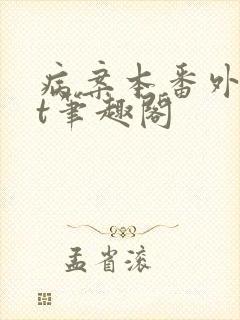 病案本番外
t笔趣阁
孟省滚